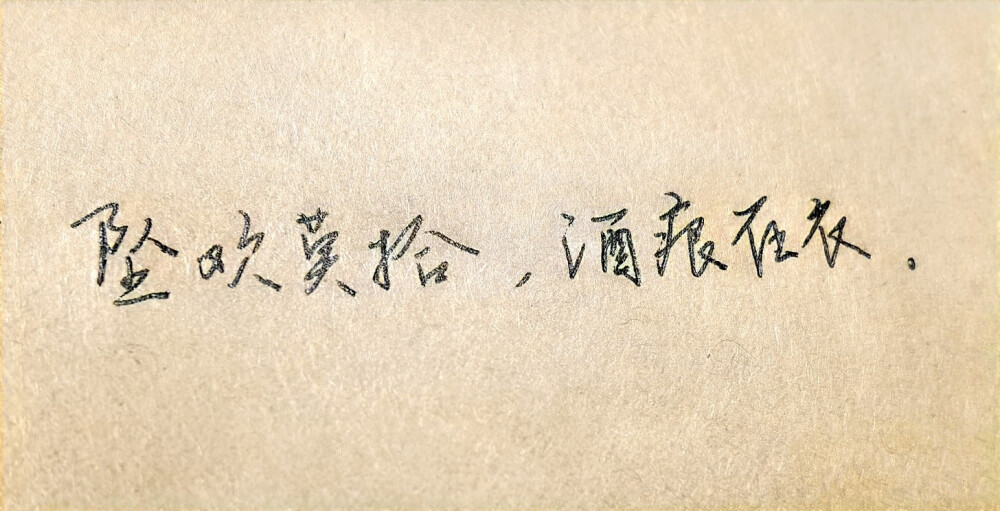 坠欢莫拾，酒痕在衣.